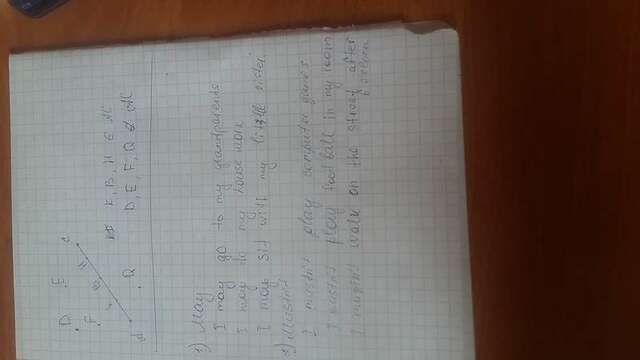 D E C
F K B H
K, B, H ∈ AC
A Q
D, E, F, Q ∉ AC
1) May
I may go to my grandparents
I may do my housework
I may sit with my little sister
2) Mustn't
I mustn't play computer games
I mustn't play football in my room
I mustn't walk on the street after